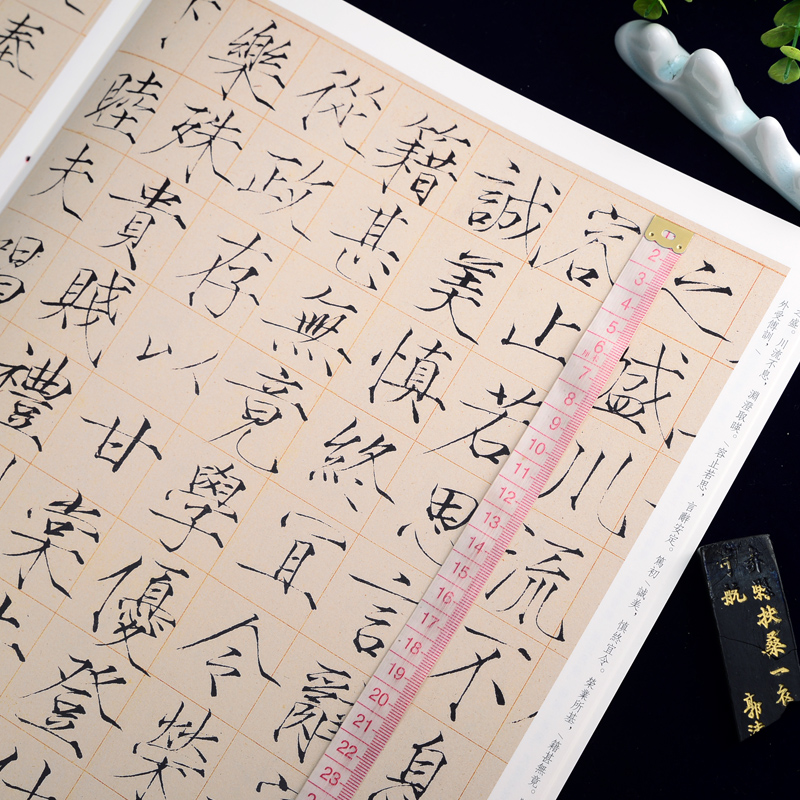 之盛川流不息
容止若思言辭
誠美慎終宜令榮
籍甚無竟學優登仕
從政存以甘棠
樂殊貴賤禮
睦夫唱
奉
2 3 4 5 6 7 8 9 10 11 12 13 14 15 16 17 18 19 20 21 22 23
之盛。川流不息，淵澄取暎。容止若思，言辭安定。篤初誠美，慎終宜令。榮業所基，籍甚無竟。
外受傅訓，
扶桑一衣